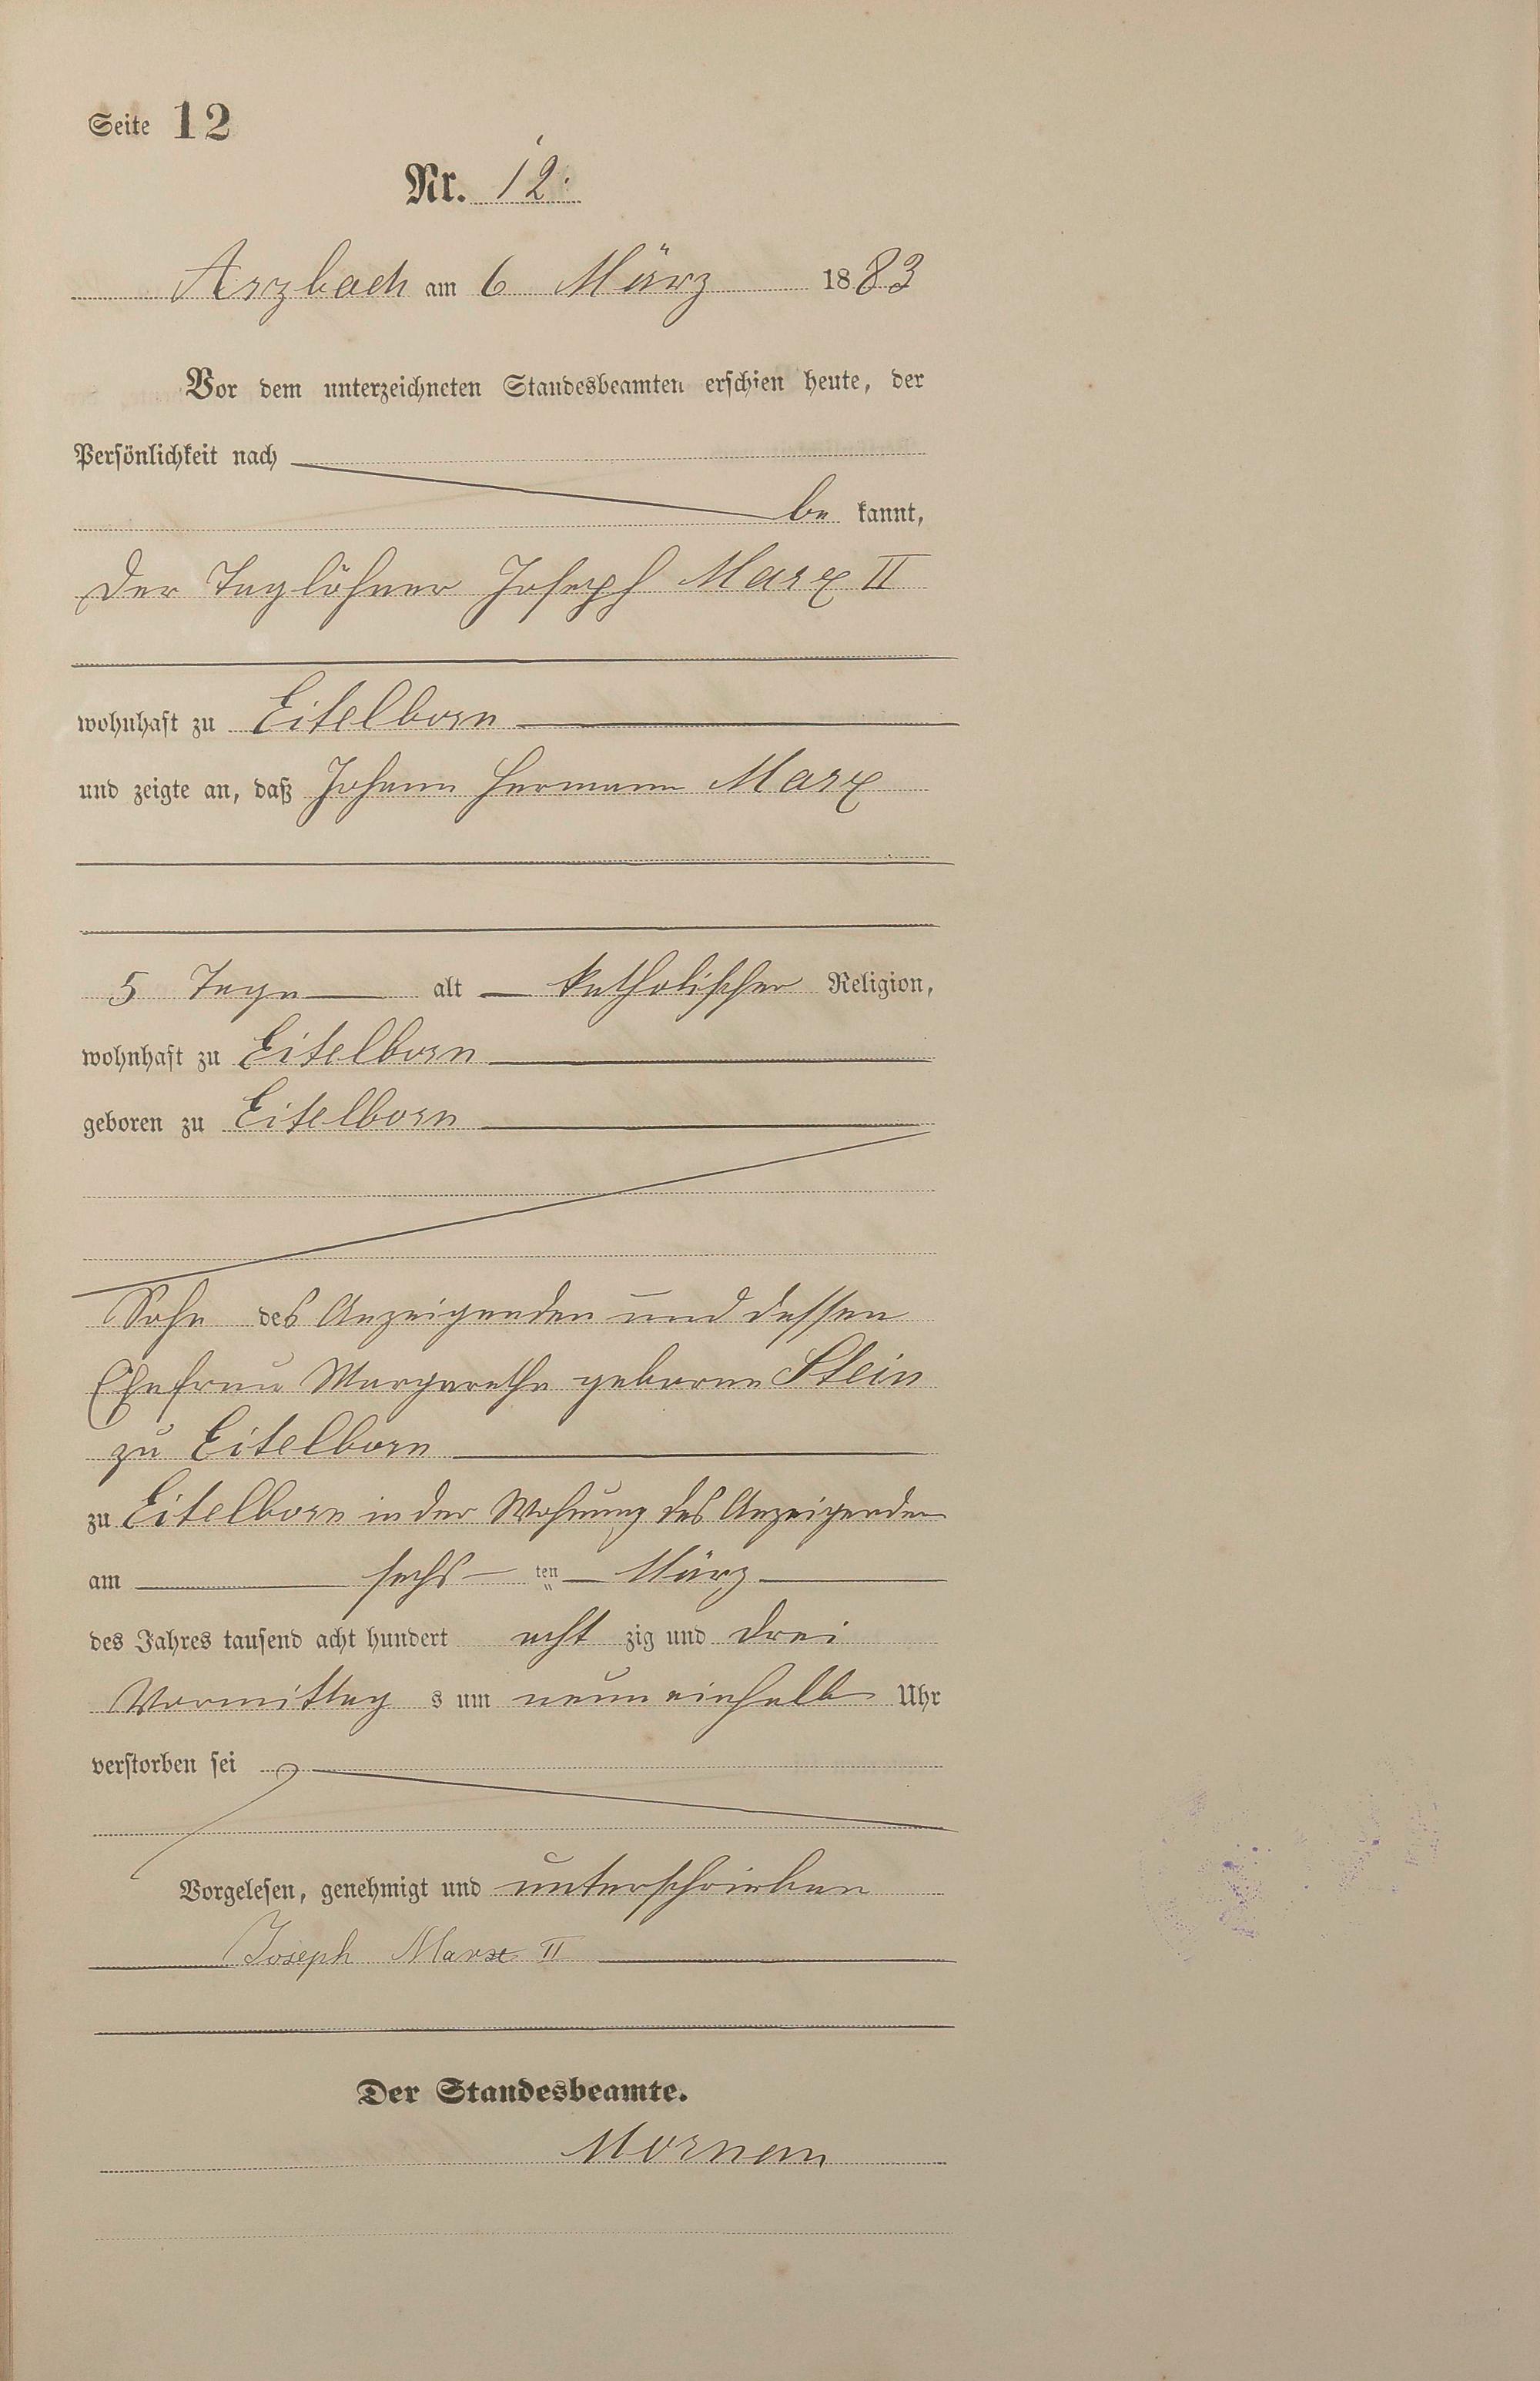 Seite 12
Nr. 12.
Arzbach am 6 März 1883
Vor dem unterzeichneten Standesbeamten erschien heute, der
Persönlichkeit nach
be kannt,
der Taglöhner Joseph Marx II
wohnhaft zu Eitelborn
und zeigte an, daß Johann Hermann Marx
5 Tage alt katholischer Religion,
wohnhaft zu Eitelborn
geboren zu Eitelborn
Sohn des Anzeigenden und dessen
Ehefrau Margarethe geborne Stein
zu Eitelborn
zu Eitelborn in der Wohnung des Anzeigenden
am sechs ten März
des Jahres tausend acht hundert acht zig und drei
Vormittag s um neun einhalb Uhr
verstorben sei
Vorgelesen, genehmigt und unterschrieben
Joseph Marx II
Der Standesbeamte.